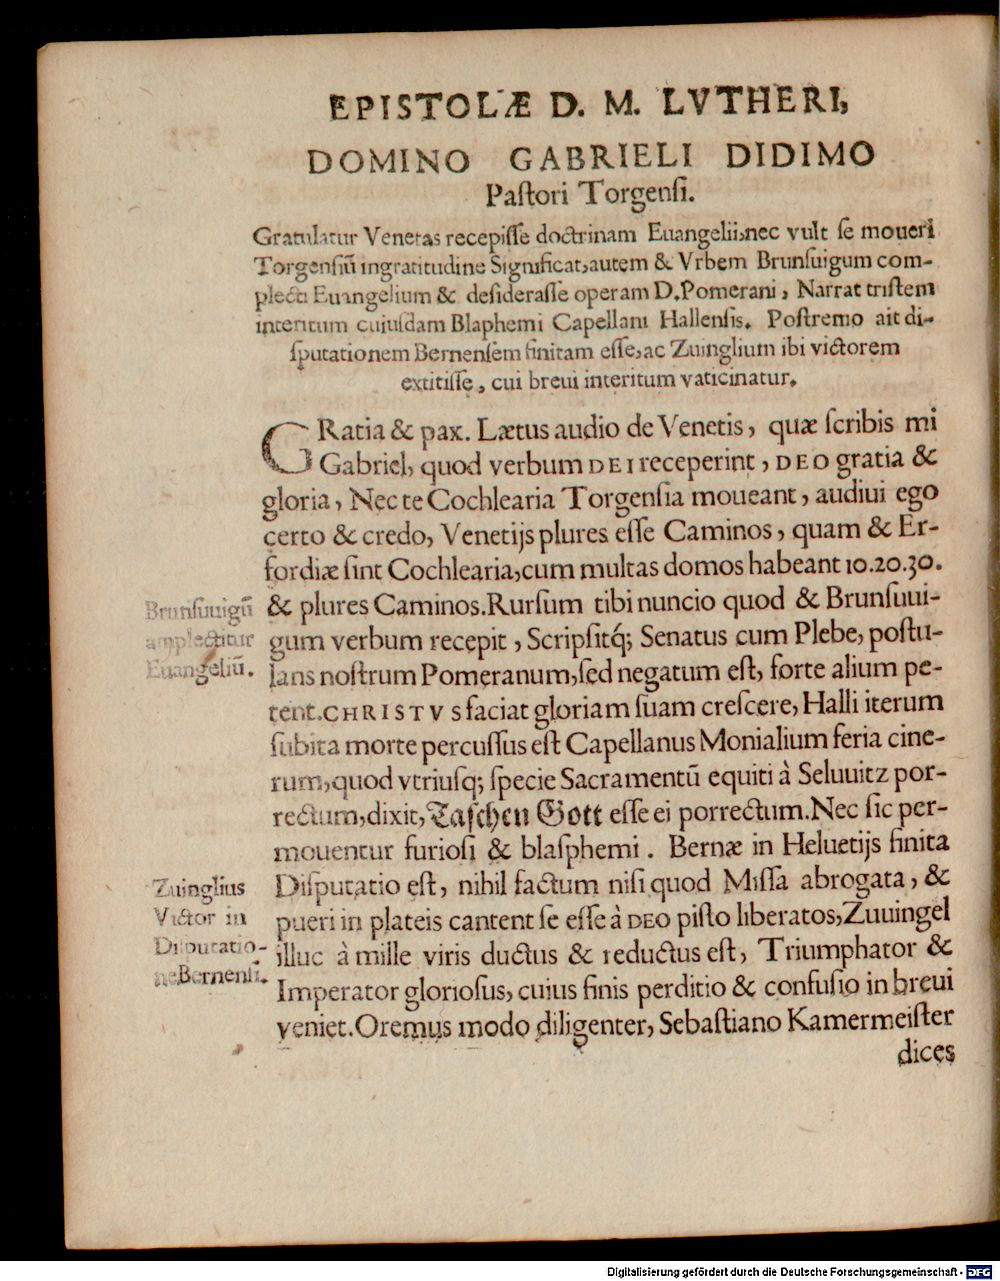 EPISTOLÆ D. M. LVTHERI,
DOMINO GABRIELI DIDIMO
Pastori Torgensi.
Gratulatur Venetas recepisse doctrinam Euangelii,nec vult se moueri
Torgensiũ ingratitudine Significat,autem & Vrbem Brunsuigum com-
plecti Euangelium & desiderasse operam D.Pomerani, Narrat tristem
interitum cuiusdam Blaphemi Capellani Hallensis. Postremo ait di-
sputationem Bernensem finitam esse,ac Zuinglium ibi victorem
extitisse, cui breui interitum vaticinatur.
GRatia & pax. Lætus audio de Venetis, quæ scribis mi
Gabriel, quod verbum DEI receperint, DEO gratia &
gloria, Nec te Cochlearia Torgensia moueant, audiui ego
certo & credo, Venetijs plures esse Caminos, quam & Er-
fordiæ sint Cochlearia,cum multas domos habeant 10.20.30.
& plures Caminos.Rursum tibi nuncio quod & Brunsuui-
gum verbum recepit, Scripsitq́; Senatus cum Plebe, postu-
lans nostrum Pomeranum,sed negatum est, forte alium pe-
tent.CHRISTVS faciat gloriam suam crescere, Halli iterum
subita morte percussus est Capellanus Monialium feria cine-
rum,quod vtriusq; specie Sacramentũ equiti à Seluuitz por-
rectum,dixit,Taschen Gott esse ei porrectum.Nec sic per-
mouentur furiosi & blasphemi. Bernæ in Heluetijs finita
Disputatio est, nihil factum nisi quod Missa abrogata, &
pueri in plateis cantent se esse à DEO pisto liberatos,Zuuingel
illuc à mille viris ductus & reductus est, Triumphator &
Imperator gloriosus, cuius finis perditio & confusio in breui
veniet.Oremus modo diligenter, Sebastiano Kamermeister
dices
Brunsuuigũ
amplectitur
Euangeliũ.
Zuinglius
Victor in
Disputatio-
ne Bernensi.
Digitalisierung gefördert durch die Deutsche Forschungsgemeinschaft - DFG